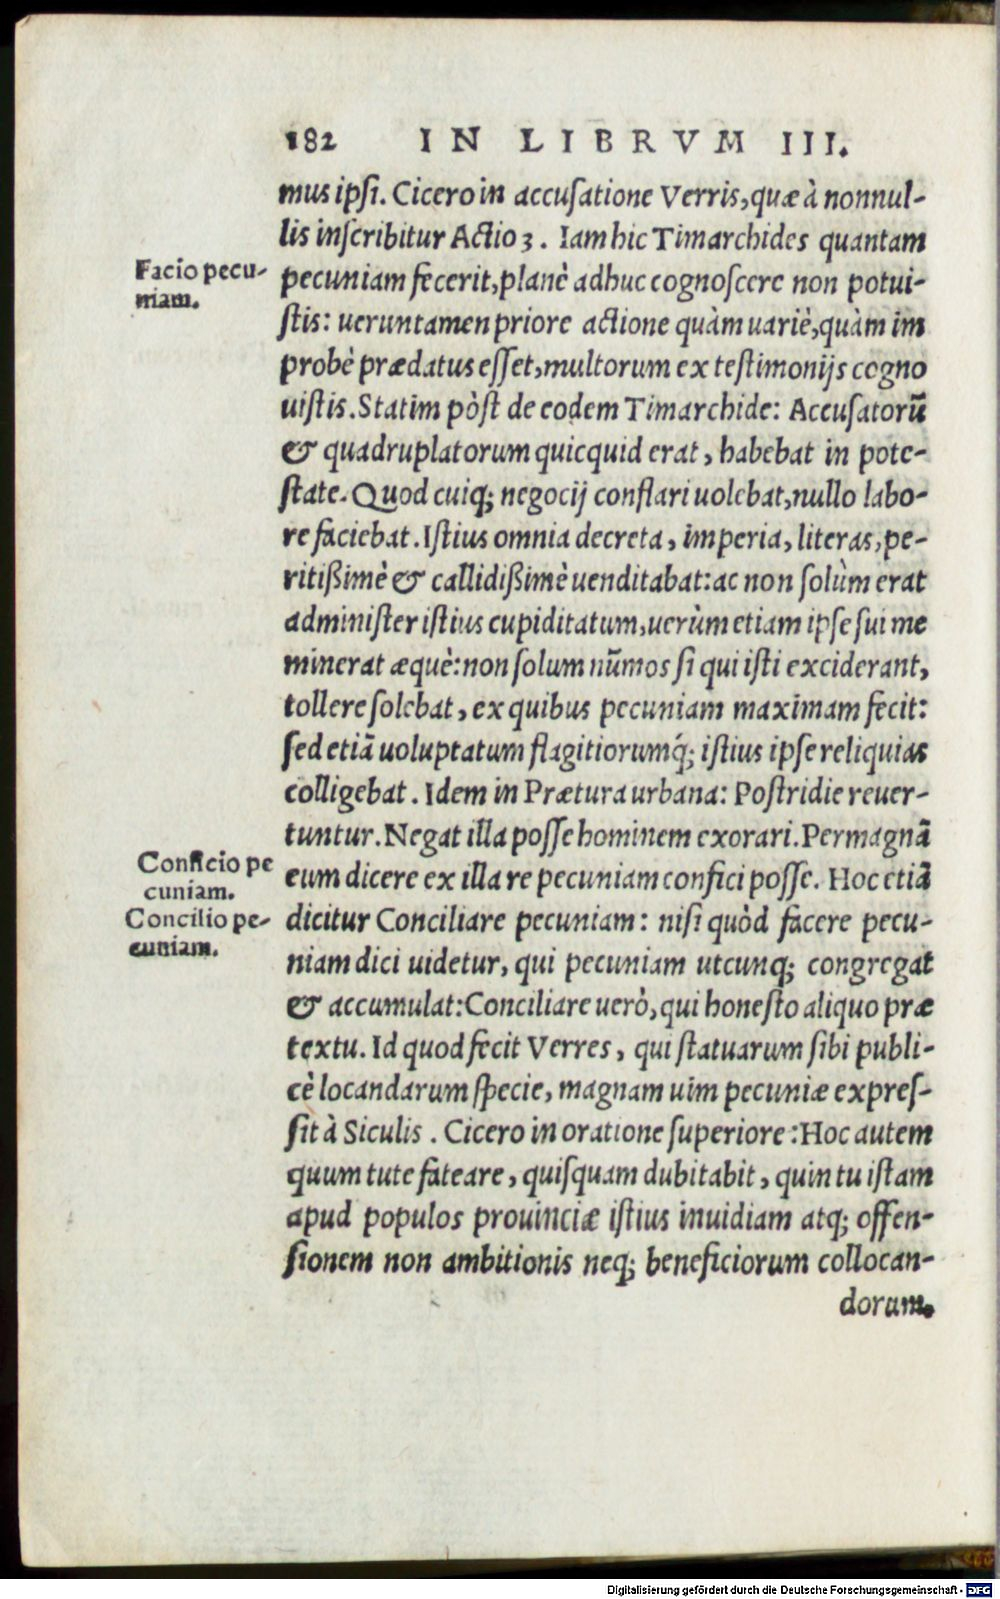 182 IN LIBRVM III.
mus ipsi. Cicero in accusatione Verris, quæ à nonnul-
lis inscribitur Actio 3. Iam hic Timarchides quantam
Facio pecu-
niam.
pecuniam fecerit, planè adhuc cognoscere non potui-
stis: ueruntamen priore actione quàm uariè, quàm im
probè prædatus esset, multorum ex testimonijs cogno
uistis. Statim pòst de eodem Timarchide: Accusatorũ
& quadruplatorum quicquid erat, habebat in pote-
state. Quod cuiq; negocij conflari uolebat, nullo labo-
re faciebat. Istius omnia decreta, imperia, literas, pe-
ritißimè & callidißimè uenditabat: ac non solùm erat
administer istius cupiditatum, uerùm etiam ipse sui me
minerat æquè: non solum nũmos si qui isti exciderant,
tollere solebat, ex quibus pecuniam maximam fecit:
sed etiã uoluptatum flagitiorumq́; istius ipse reliquias
colligebat. Idem in Prætura urbana: Postridie reuer-
tuntur. Negat illa posse hominem exorari. Permagnã
Conficio pe
cuniam.
eum dicere ex illa re pecuniam confici posse. Hoc etiã
Concilio pe-
cuniam.
dicitur Conciliare pecuniam: nisi quòd facere pecu-
niam dici uidetur, qui pecuniam utcunq; congregat
& accumulat: Conciliare uerò, qui honesto aliquo præ
textu. Id quod fecit Verres, qui statuarum sibi publi-
cè locandarum specie, magnam uim pecuniæ expres-
sit à Siculis. Cicero in oratione superiore: Hoc autem
quum tute fateare, quisquam dubitabit, quin tu istam
apud populos prouinciæ istius inuidiam atq; offen-
sionem non ambitionis neq; beneficiorum collocan-
dorum.
Digitalisierung gefördert durch die Deutsche Forschungsgemeinschaft - DFG